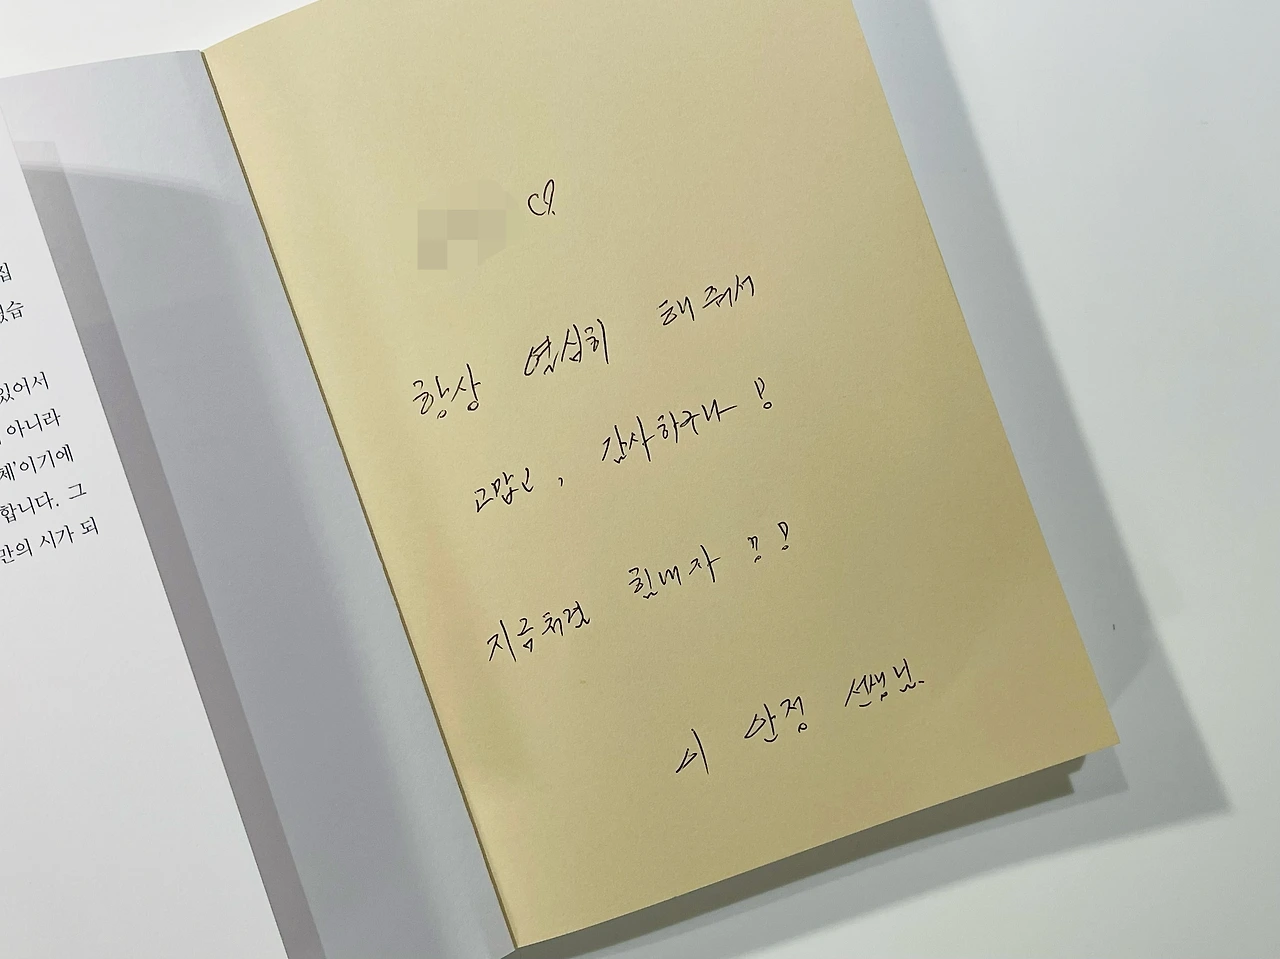 집
습
있어서
아니라
체'이기에
합니다. 그
만의 시가 되
♡
항상 열심히 해 줘서
고맙고, 감사하구나!
지금처럼 힘내자!!
안정 선생님.